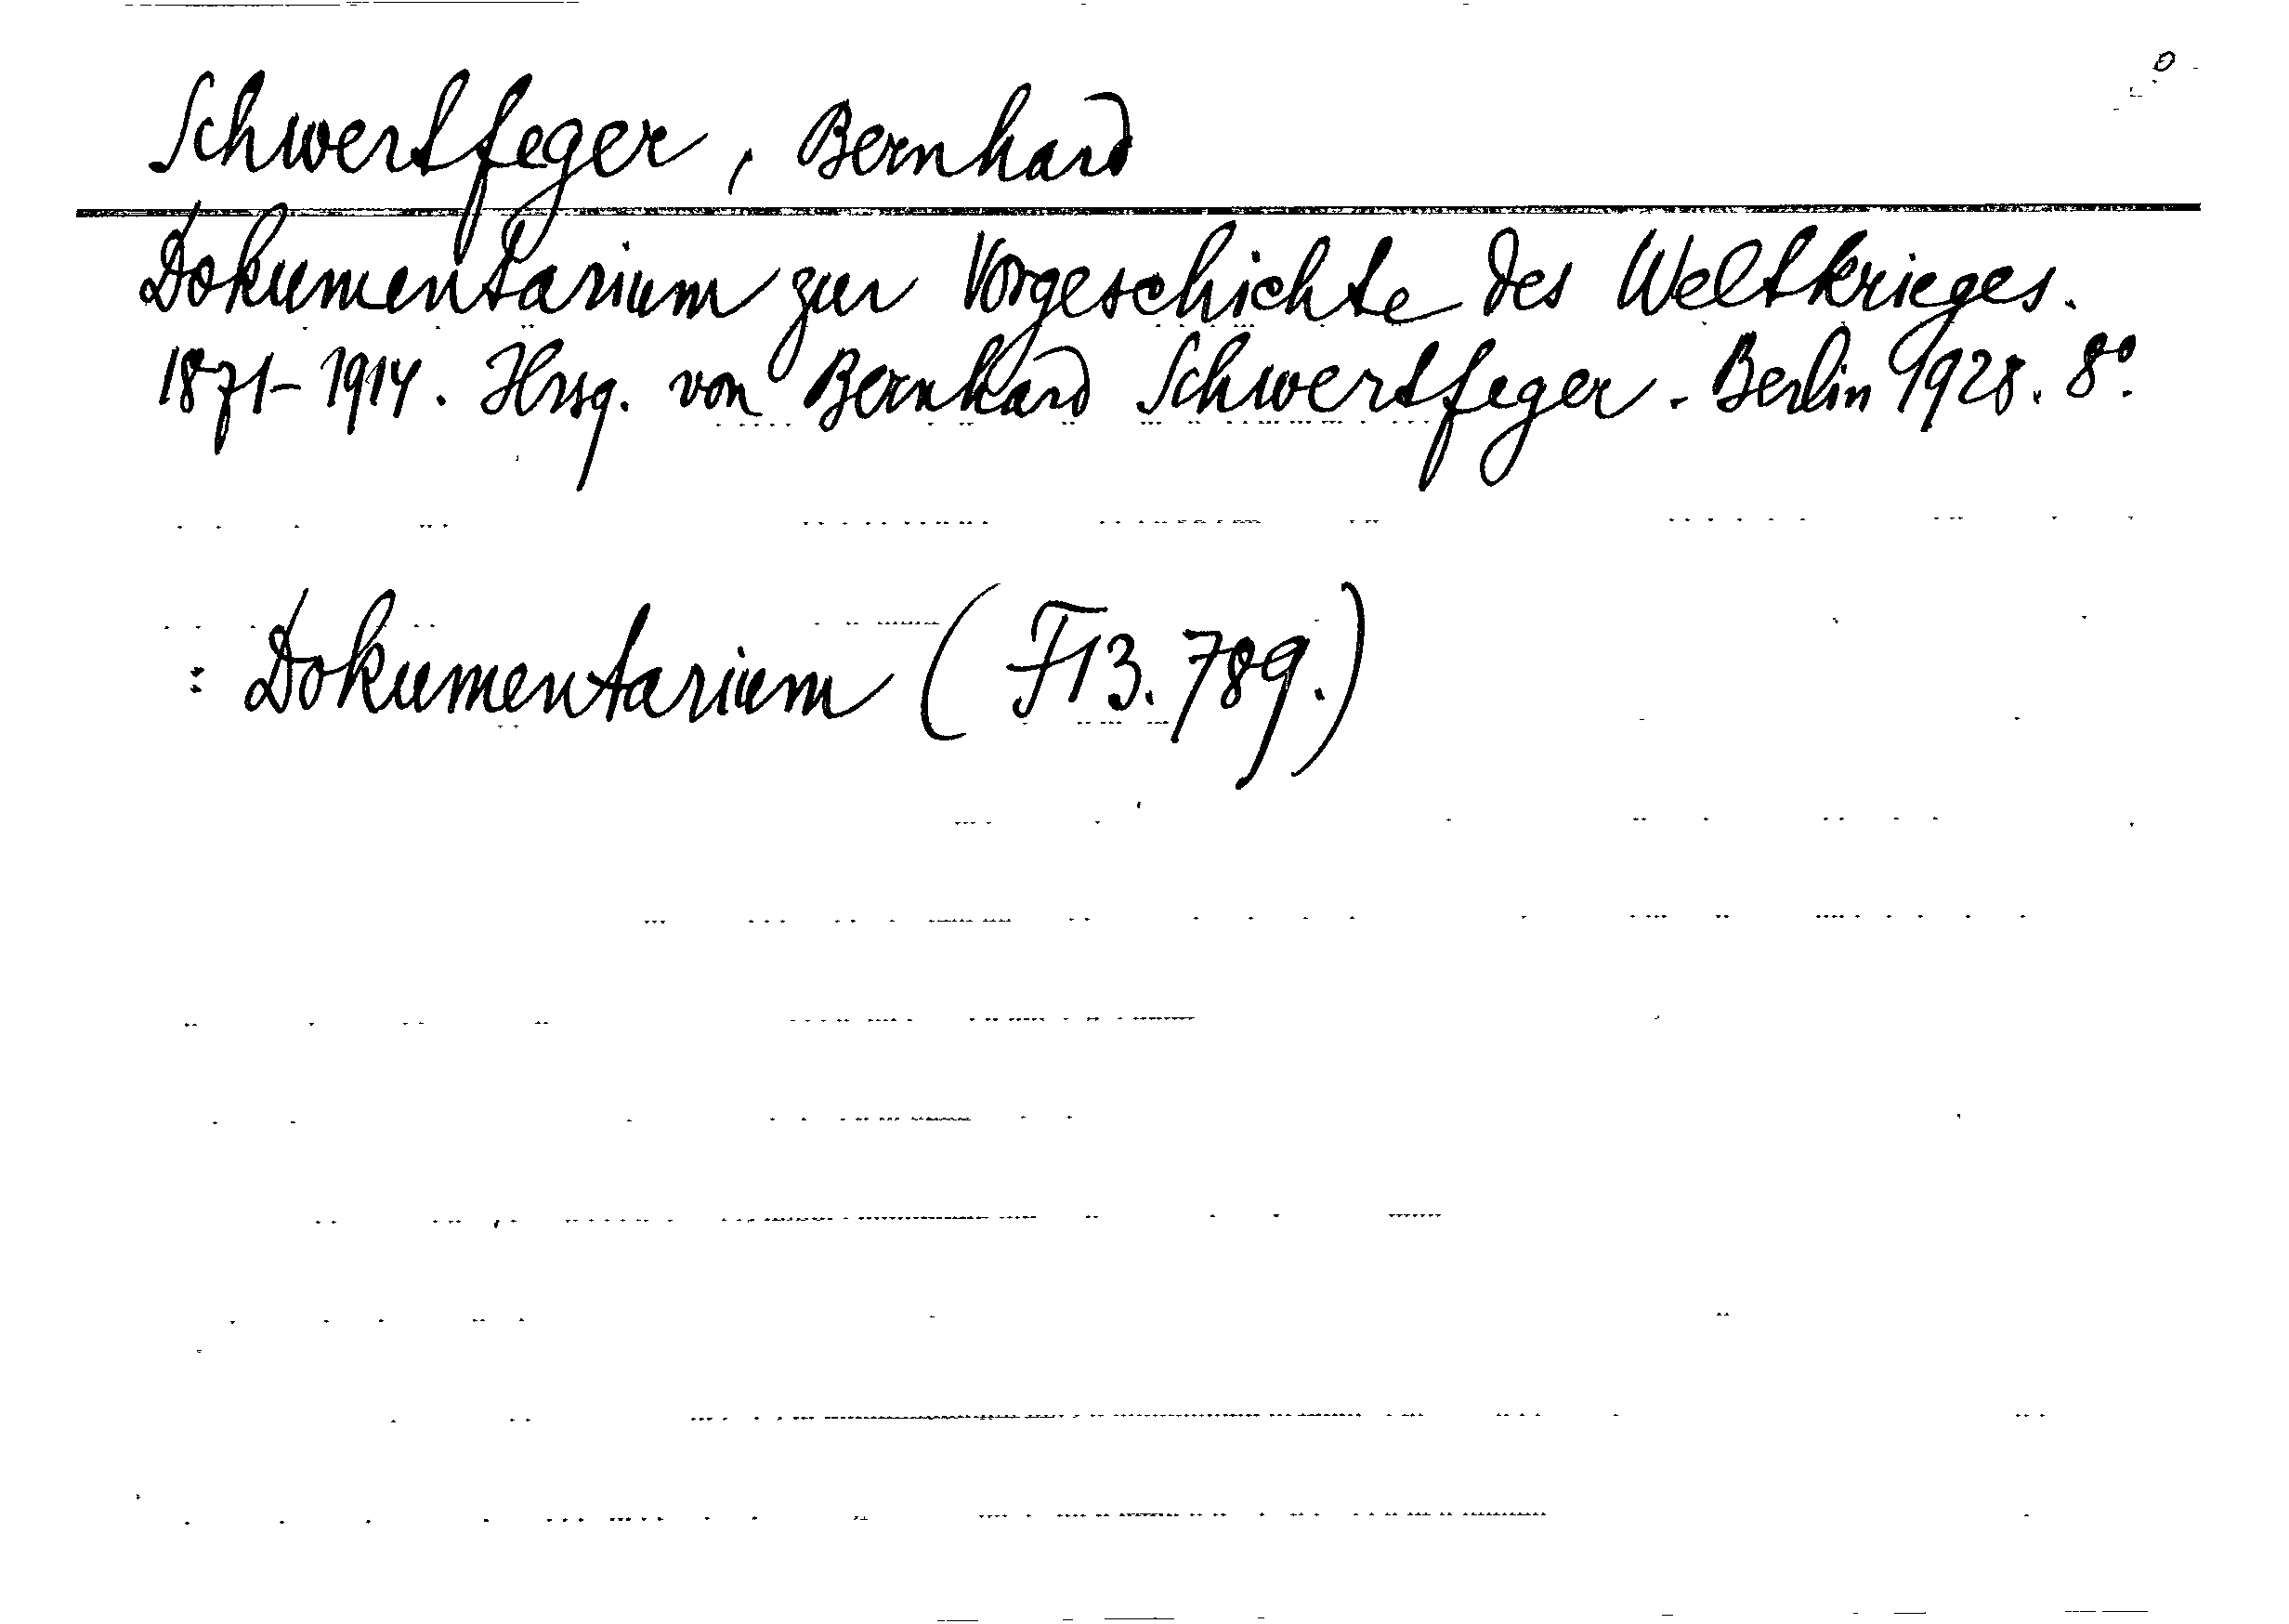 Schwertfeger, Bernhard
Dokumentarium zur Vorgeschichte des Weltkrieges.
1871-1914. Hrsg. von Bernhard Schwertfeger. Berlin 1928. 8°.
: Dokumentarium (F13.789.)